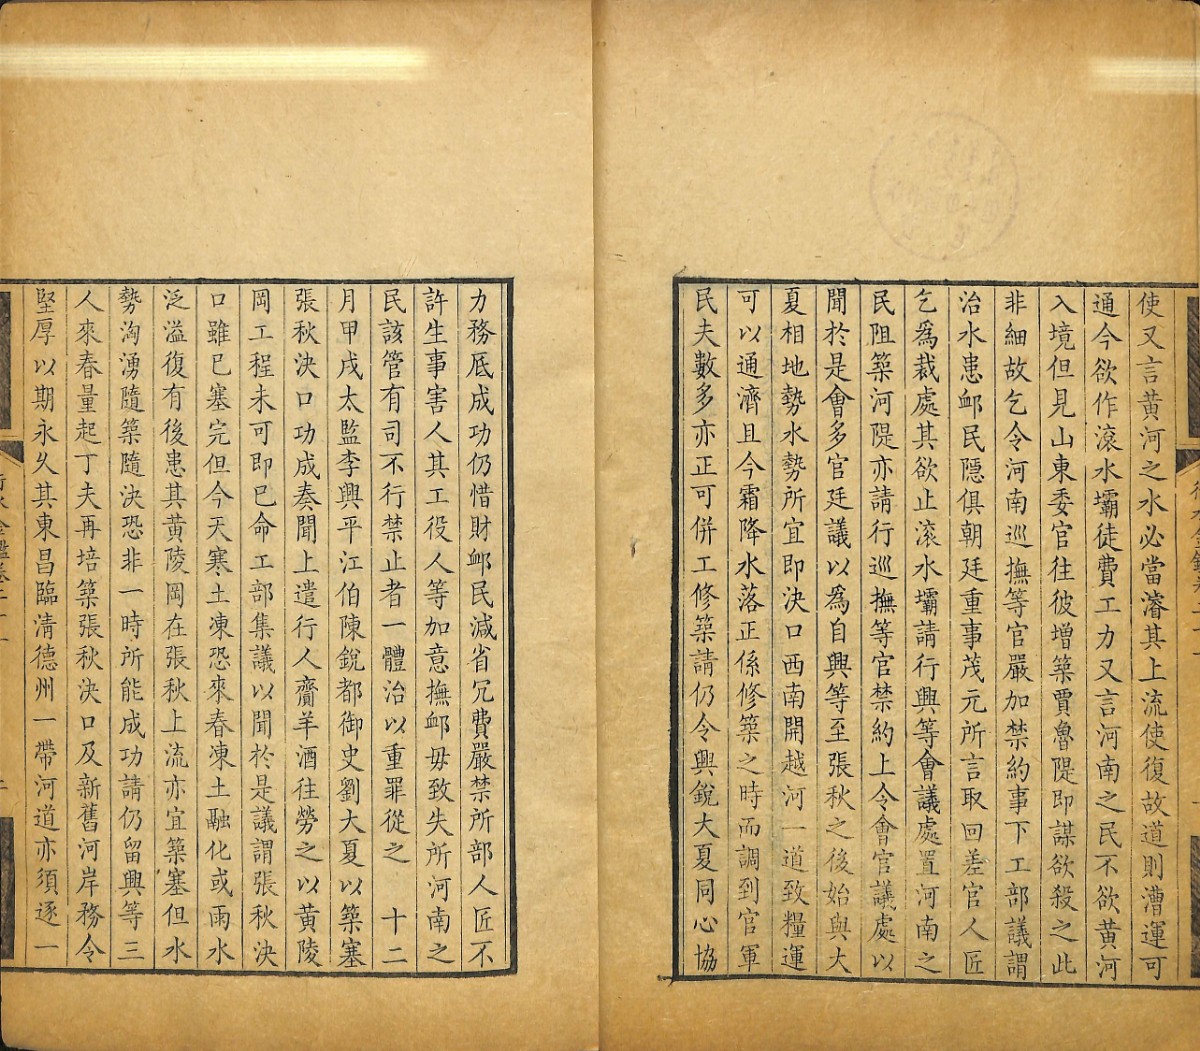 使又言黃河之水必當濬其上流使復故道則漕運可
通今欲作滾水壩徒費工力又言河南之民不欲黃河
入境但見山東委官往彼增築賈魯隄即謀欲殺之此
非細故乞令河南巡撫等官嚴加禁約事下工部議謂
治水患䘏民隱俱朝廷重事茂元所言取回差官人匠
乞爲裁處其欲止滾水壩請行興等會議處置河南之
民阻築河隄亦請行巡撫等官禁約上令會官議處以
聞於是會多官廷議以爲自興等至張秋之後始與大
夏相地勢水勢所宜即決口西南開越河一道致糧運
可以通濟且今霜降水落正係修築之時而調到官軍
民夫數多亦正可併工修築請仍令興銳大夏同心協
力務底成功仍惜財䘏民減省冗費嚴禁所部人匠不
許生事害人其工役人等加意撫䘏毋致失所河南之
民該管有司不行禁止者一體治以重罪從之　十二
月甲戌太監李興平江伯陳銳都御史劉大夏以築塞
張秋決口功成奏聞上遣行人齎羊酒往勞之以黃陵
岡工程未可即已命工部集議以聞於是議謂張秋決
口雖已塞完但今天寒土凍恐來春凍土融化或雨水
泛溢復有後患其黃陵岡在張秋上流亦宜築塞但水
勢洶湧隨築隨決恐非一時所能成功請仍留興等三
人來春量起丁夫再培築張秋決口及新舊河岸務令
堅厚以期永久其東昌臨清德州一帶河道亦須逐一